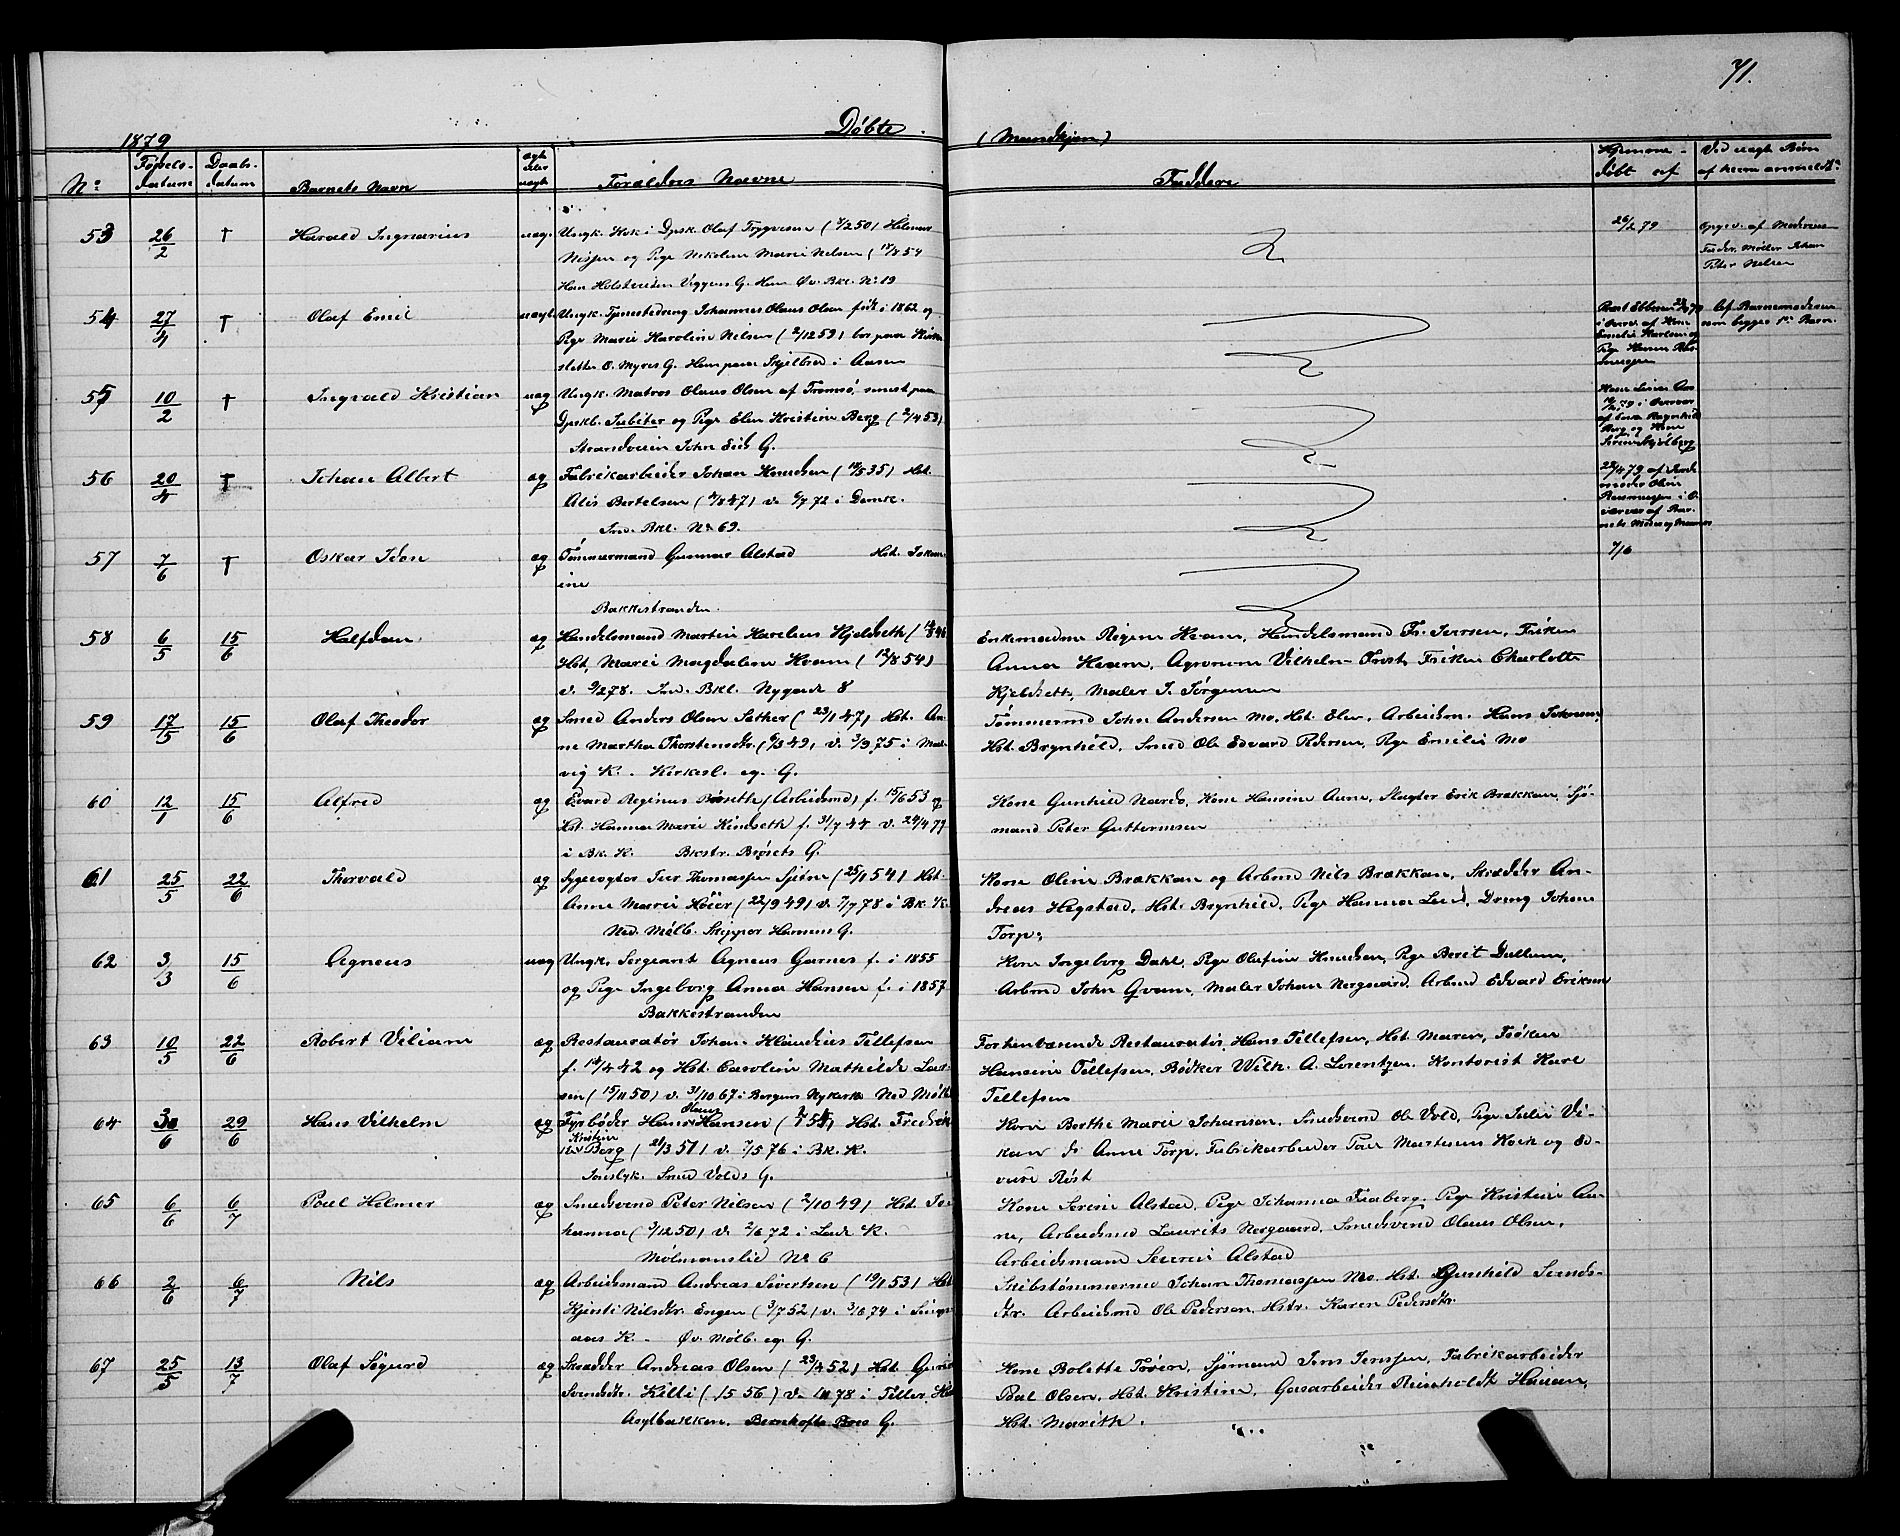 71.
1879 Døbte. (Mandkjøn)
No Fødsels-datum Daabs-datum Barnets Navn ægte eller uægte Forældres Navne Faddere Hjemme-døbt af Ved uægte Børn af hvem anmeldt
53 26/2 † Harald Ingvarius uæg. Ungk. Kok i Dpsk. Olaf Trygvesøn Hilmar
Nissen og Pige Nikoline Marie Nielsen
G. Ham Øv. Bkl. No 19
26/2 79 Opgiv. af Moderens
Fader, Møller Johan
Peter Nielsen
54 27/4 † Olaf Emil uægt Ungk. Tjenestedreng Johannes Olaus Olsen født i 1862 og
Pige Marie Karoline Nilsen (2/12 59) bor paa Kirke-
sletten O. Myres G. Ham paa Skjelbred i Aasen
Af Barnemoderen
som begges 1ste Barn.
55 10/2 † Ingvald Kristian uæg Ungk. Matros Olaus Olsen af Tromsø, senest paa
Dpskb. Jubiter og Pige Elen Kristine Berg (2/4 53)
Strandveien John Eids G.
56 20/4 † Johan Albert æg Fabrikarbeider Johan Knudsen Hst.
Alis Bertelsen v. 6/7 72 i Domk.
Ind. Bkl. No 69.
57 7/6 † Oskar Idon æg Tømmermand Gunnar Alstad Hst. Jokum-
ine
Bakkestranden.
7/6
58 6/5 15/6 Halfdan æg Handelsmand Martin Karelius Kjeldseth
Hst. Marie Magdalene Kvam (12/8 54)
v. 9/2 78. Ind. Bkl. Nygade 8
Enkemadme Regine Kvam, Handelsmand Fr. Iversen, Frøken
Anna Kvam, Agronom Vilhelm Frost, Frøken Charlotte
Kjeldseth, Maler J. Jørgensen
59 17/5 15/6 Olaf Theodor æg Smed Anders Olsen Sæther (23/1 47) Hst. An-
ne Martha Thorstensdtr. (6/3 49) v. 3/9 75 i Mal-
vig K. Kirkesl. eg. G.
Tømmermd John Andersen Mo, Hst. Elen, Arbeidsm. Hans Johnsen,
Hst. Brynhild, Smed Ole Edvard Pedersen, Pige Emilie Mo
60 12/1 15/6 Alfred æg Evard Reginus Brøseth (Arbeidsmd) f. 15/6 53 og
Hst. Hanna Marie Kindseth f. 31/7 44 v. 24/4 79
i Bk. K. Bkstr. Brøsets G.
Kone Gunhild Nardo, Kone Hansine Aune, Slagter Erik Brækkan, Sjø-
mand Peter Guttormsen
61 25/5 22/6 Thorvald æg Sygevogter Iver Thomassen Sjetne (25/1 54) Hst.
Anne Marie Høier (22/9 49) v. 7/7 78 i Bk. K.
Ned. Mølb. Skipper Hansens G.
Kone Oline Brækkan og Arbmd Nils Brækkan, Skrædder An-
dreas Hegstad, Hst. Brynhild, Pige Hanna Lund, Dreng Johan
Torp.
62 3/3 15/6 Agneus uæg Ungk. Sergeant Agneus Garnes f. i 1855
og Pige Ingeborg Anna Hansen f. i 1857
Bakkestranden
Kone Ingeborg Dahl, Pige Olufine Knudsen, Pige Beret Dullum,
Arbmd John Qvam, Maler Johan Nergaard, Arbmd Edvard Eriksen
63 10/5 22/6 Robert Viliam æg Restauratør Johan Klaudius Tellefsen
f. 14/4 42 og Hst. Caroline Mathilde Lar-
sen (15/11 50) v. 31/10 67 i Bergens Nykirke Ned Mølb
Forhenværende Restauratør Hans Tellefsen, Hst. Maren, Frøken
Hansine Tellefsen, Bødker Wilh. A. Lorentzen, Kontorist Karl
Tellefsen
64 30/6 29/6 Hans Vilhelm æg Fyrbøder Hans Olaus Hansen Hst. Fredrik-
ke Kristine Berg (21/3 51) v. 7/5 76 i Bk. K.
Inslyk. Smed Volds G.
Kone Berthe Marie Johansen, Smedsvend Ole Vold, Pige Julie Vi-
kan do Anne Torp, Fabrikarbeider Paul Martinus Kvik og Ed-
vard Røst
65 6/6 6/7 Paul Helmer æg Smedsvend Peter Nilsen (2/10 49) Hst. Jo-
hanna (3/12 50) v. 2/6 72 i Lade K.
Mølmanslid No 6
Kone Serine Alstad, Pige Johanna Fuaberg, Pige Kristine Au-
ne, Arbeidsmd Laurits Nergaard, Smedsvend Olaus Olsen,
Arbeidsmand Severin Alstad
66 2/6 6/7 Nils æg Arbeidsmand Andreas Sivertsen (19/1 53) Hst.
Kjersti Nilsdtr. Engen (3/7 52) v. 3/6 74 i Sing-
aas K. Øv. Mølb. eg. G.
Skibstømmermd Johan Thomassen Mo, Hst. Gunhild Svends-
dtr. Arbeidsmd Ole Pedersen, Hstr. Karen Pedersdtr.
67 25/5 13/7 Olaf Sigurd æg Skrædder Andreas Olsen (23/4 52) Hst. Guri
Svendsdtr. Killi (15 56) v. 78 i Tiller K.
Asylbakken, Bernhofts Bros G.
Kone Bolette Foven, Sjømand Jens Jenssen, Fabrikarbeider
Paul Olsen, Hst. Kristine, Gasarbeider Reinholdt Hauan,
Hst. Marith.